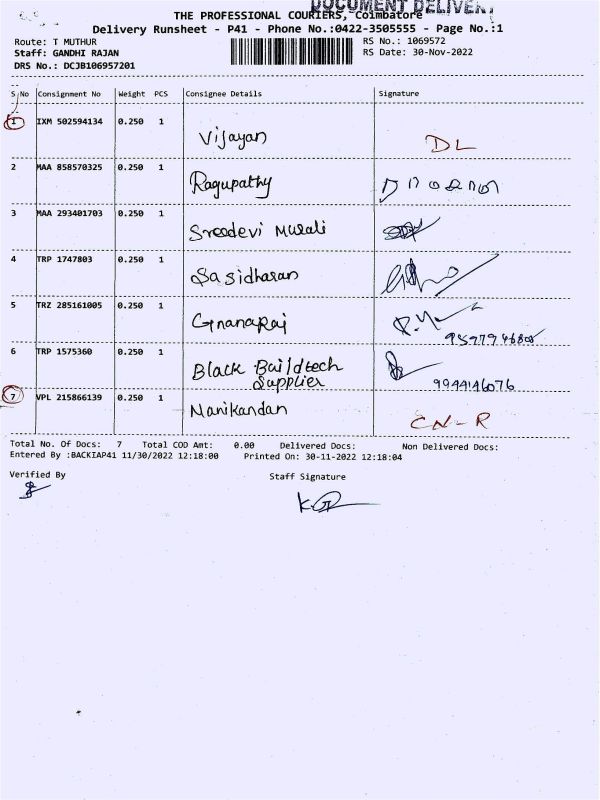 DOCUMENT DELIVERY
THE PROFESSIONAL COURIERS, Coimbatore
Delivery Runsheet - P41 - Phone No.:0422-3505555 - Page No.:1
Route: T MUTHUR RS No.: 1069572
Staff: GANDHI RAJAN RS Date: 30-Nov-2022
DRS No.: DCJB106957201
S No Consignment No Weight PCS Consignee Details Signature
1 IXM 502594134 0.250 1 Vijayan DL
2 MAA 858570325 0.250 1 Ragupathy
3 MAA 293401703 0.250 1 Sreedevi Murali
4 TRP 1747803 0.250 1 Sasidharan
5 TRZ 285161005 0.250 1 Gnanaraj
6 TRP 1575360 0.250 1 Black Buildtech
Supplier 9944146076
7 VPL 215866139 0.250 1 Manikandan CN-R
Total No. Of Docs: 7 Total COD Amt: 0.00 Delivered Docs: Non Delivered Docs:
Entered By :BACKIAP41 11/30/2022 12:18:00 Printed On: 30-11-2022 12:18:04
Verified By Staff Signature